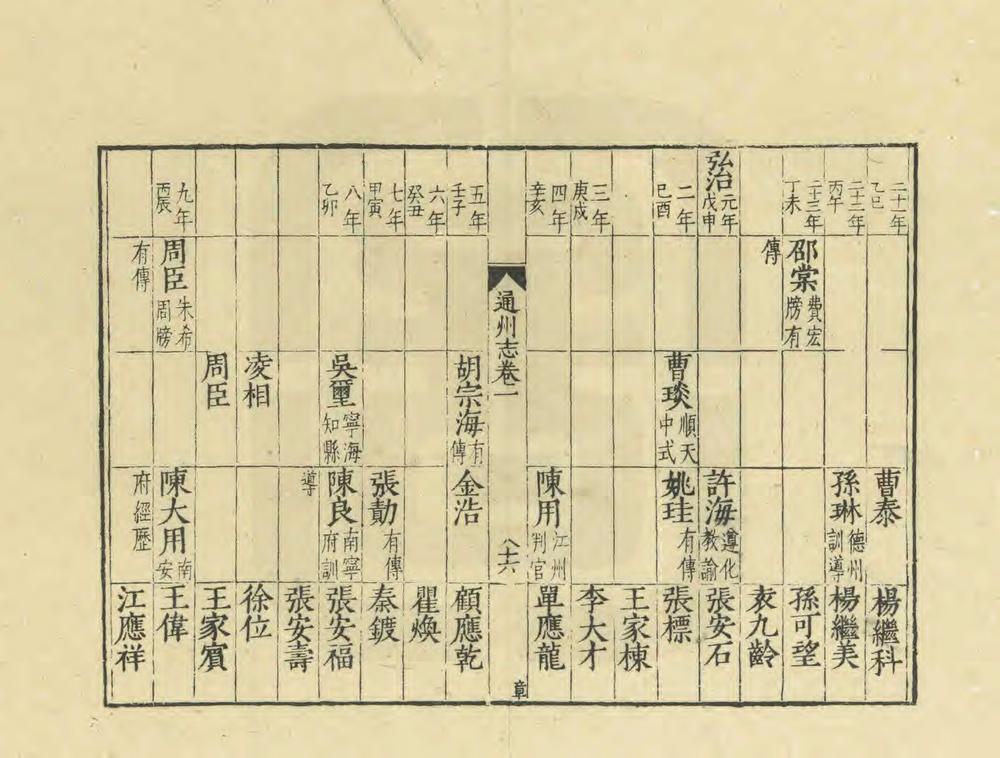 二十一年乙巳
曹泰
楊繼科
二十二年丙午
孫琳德州訓導
楊繼美
二十三年丁未
邵棠費宏牓有傳
孫可望
袁九齡
弘治元年戊申
許海遵化教諭
張安石
二年己酉
曹琰順天中式
姚珪有傳
張標
王家棟
三年庚戌
李大才
四年辛亥
陳用江州判官
單應龍
通州志卷二
八十六
章
五年壬子
胡宗海有傳
金浩
顧應乾
六年癸丑
瞿煥
七年甲寅
張勣有傳
秦鍍
八年乙卯
吳璽寧海知縣
陳良南寧府訓導
張安福
張安壽
凌相
徐位
周臣
王家賓
九年丙辰
周臣朱希周牓有傳
陳大用南安府經歷
王偉
江應祥